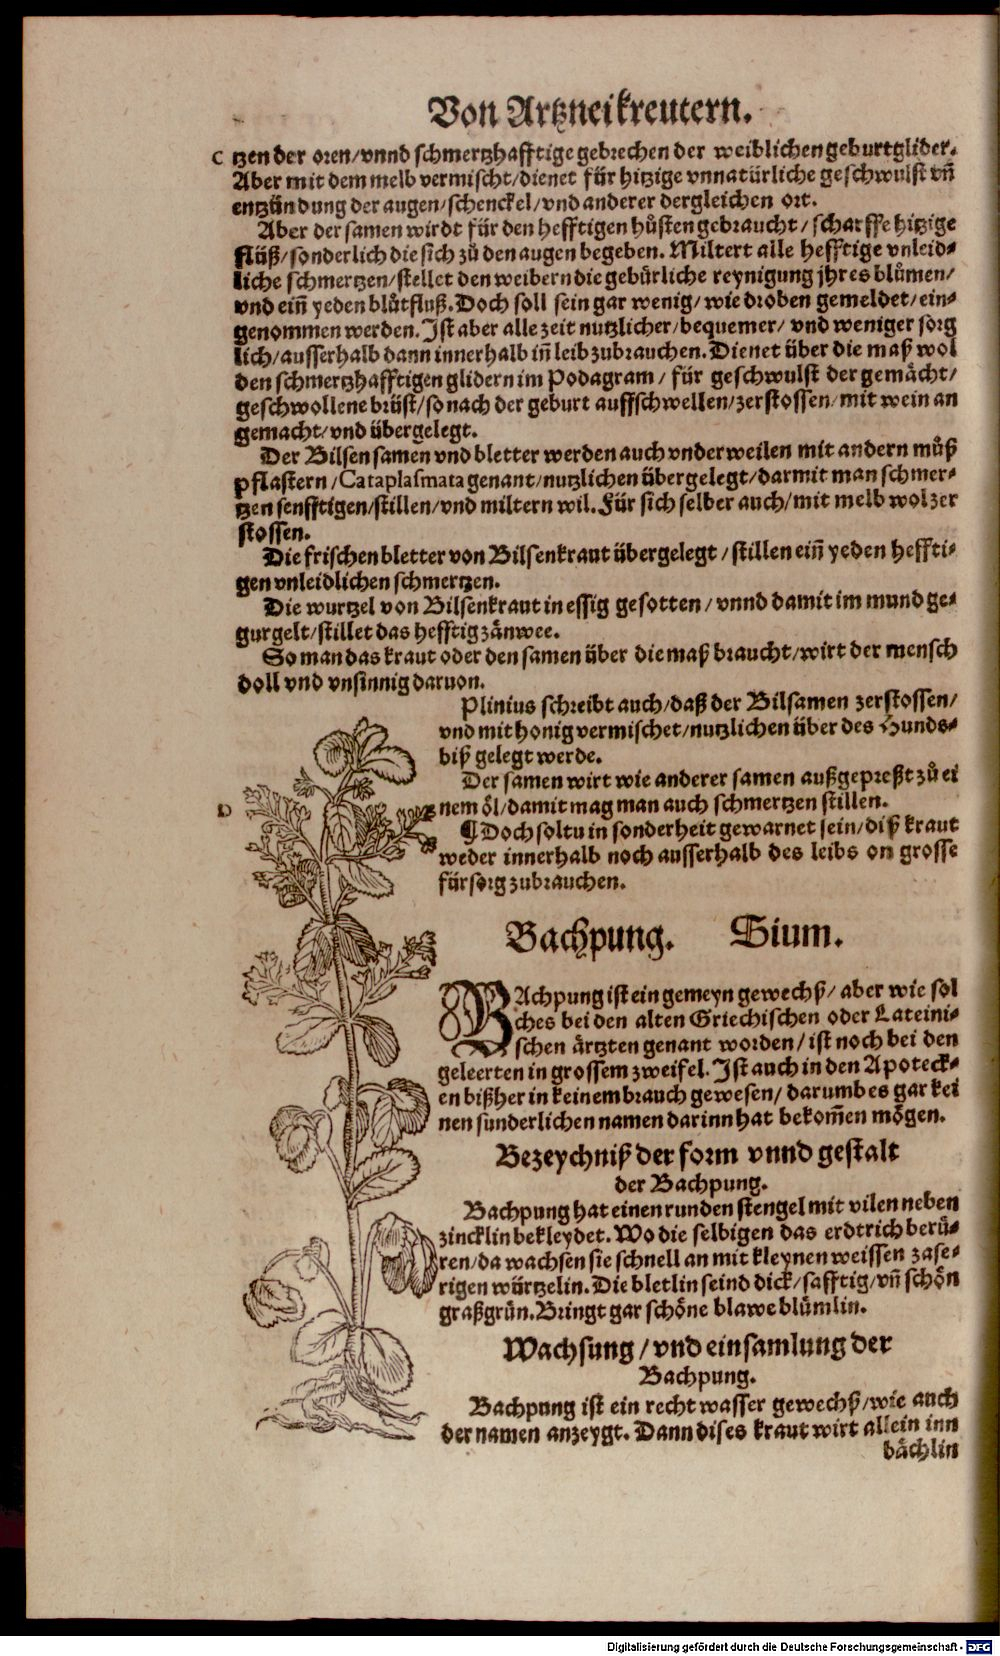 Von Artzneikreutern.
C tzen der oren/vnnd schmertzhafftige gebrechen der weiblichen geburtglider.
Aber mit dem melb vermischt/dienet für hitzige vnnatürliche geschwulst vñ
entzündung der augen/schenckel/vnd anderer dergleichen ort.
Aber der samen wirdt für den hefftigen hůsten gebraucht/scharffe hitzige
flüß/sonderlich die sich zů den augen begeben. Miltert alle hefftige vnleid-
liche schmertzen/stellet den weibern die gebürliche reynigung jhres blůmen/
vnd eiñ yeden blůtfluß. Doch soll sein gar wenig/wie droben gemeldet/ein-
genommen werden. Ist aber alle zeit nutzlicher/bequemer/vnd weniger sorg
lich/ausserhalb dann innerhalb iñ leib zubrauchen. Dienet über die maß wol
den schmertzhafftigen glidern im Podagram/für geschwulst der gemächt/
geschwollene brüst/so nach der geburt auffschwellen/zerstossen/mit wein an
gemacht/vnd übergelegt.
Der Bilsen samen vnd bletter werden auch vnderweilen mit andern můß
pflastern/Cataplasmata genant/nutzlichen übergelegt/darmit man schmer-
tzen senfftigen/stillen/vnd miltern wil. Für sich selber auch/mit melb wol zer
stossen.
Die frischen bletter von Bilsenkraut übergelegt/stillen eiñ yeden heffti-
gen vnleidlichen schmertzen.
Die wurtzel von Bilsenkraut in essig gesotten/vnnd damit im mund ge-
gurgelt/stillet das hefftig zänwee.
So man das kraut oder den samen über die maß braucht/wirt der mensch
doll vnd vnsinnig daruon.
Plinius schreibt auch/daß der Bilsamen zerstossen/
vnd mit honig vermischet/nutzlichen über des Hunds-
biß gelegt werde.
Der samen wirt wie anderer samen außgepreßt zů ei
D nem öl/damit mag man auch schmertzen stillen.
¶ Doch soltu in sonderheit gewarnet sein/diß kraut
weder innerhalb noch ausserhalb des leibs on grosse
fürsorg zubrauchen.
Bachpung. Sium.
BAchpung ist ein gemeyn gewechß/aber wie sol
ches bei den alten Griechischen oder Lateini-
schen ärtzten genant worden/ist noch bei den
geleerten in grossem zweifel. Ist auch in den Apoteck-
en bißher in keinem brauch gewesen/darumb es gar kei
nen sunderlichen namen darinn hat bekom̃en mögen.
Bezeychniß der form vnnd gestalt
der Bachpung.
Bachpung hat einen runden stengel mit vilen neben
zincklin bekleydet. Wo die selbigen das erdtrich berü-
ren/da wachsen sie schnell an mit kleynen weissen zase-
rigen würtzelin. Die bletlin seind dick/safftig/vñ schön
graßgrün. Bringt gar schöne blawe blümlin.
Wachsung/vnd einsamlung der
Bachpung.
Bachpung ist ein recht wasser gewechß/wie auch
der namen anzeygt. Dann dises kraut wirt allein inn
bächlin
Digitalisierung gefördert durch die Deutsche Forschungsgemeinschaft - DFG